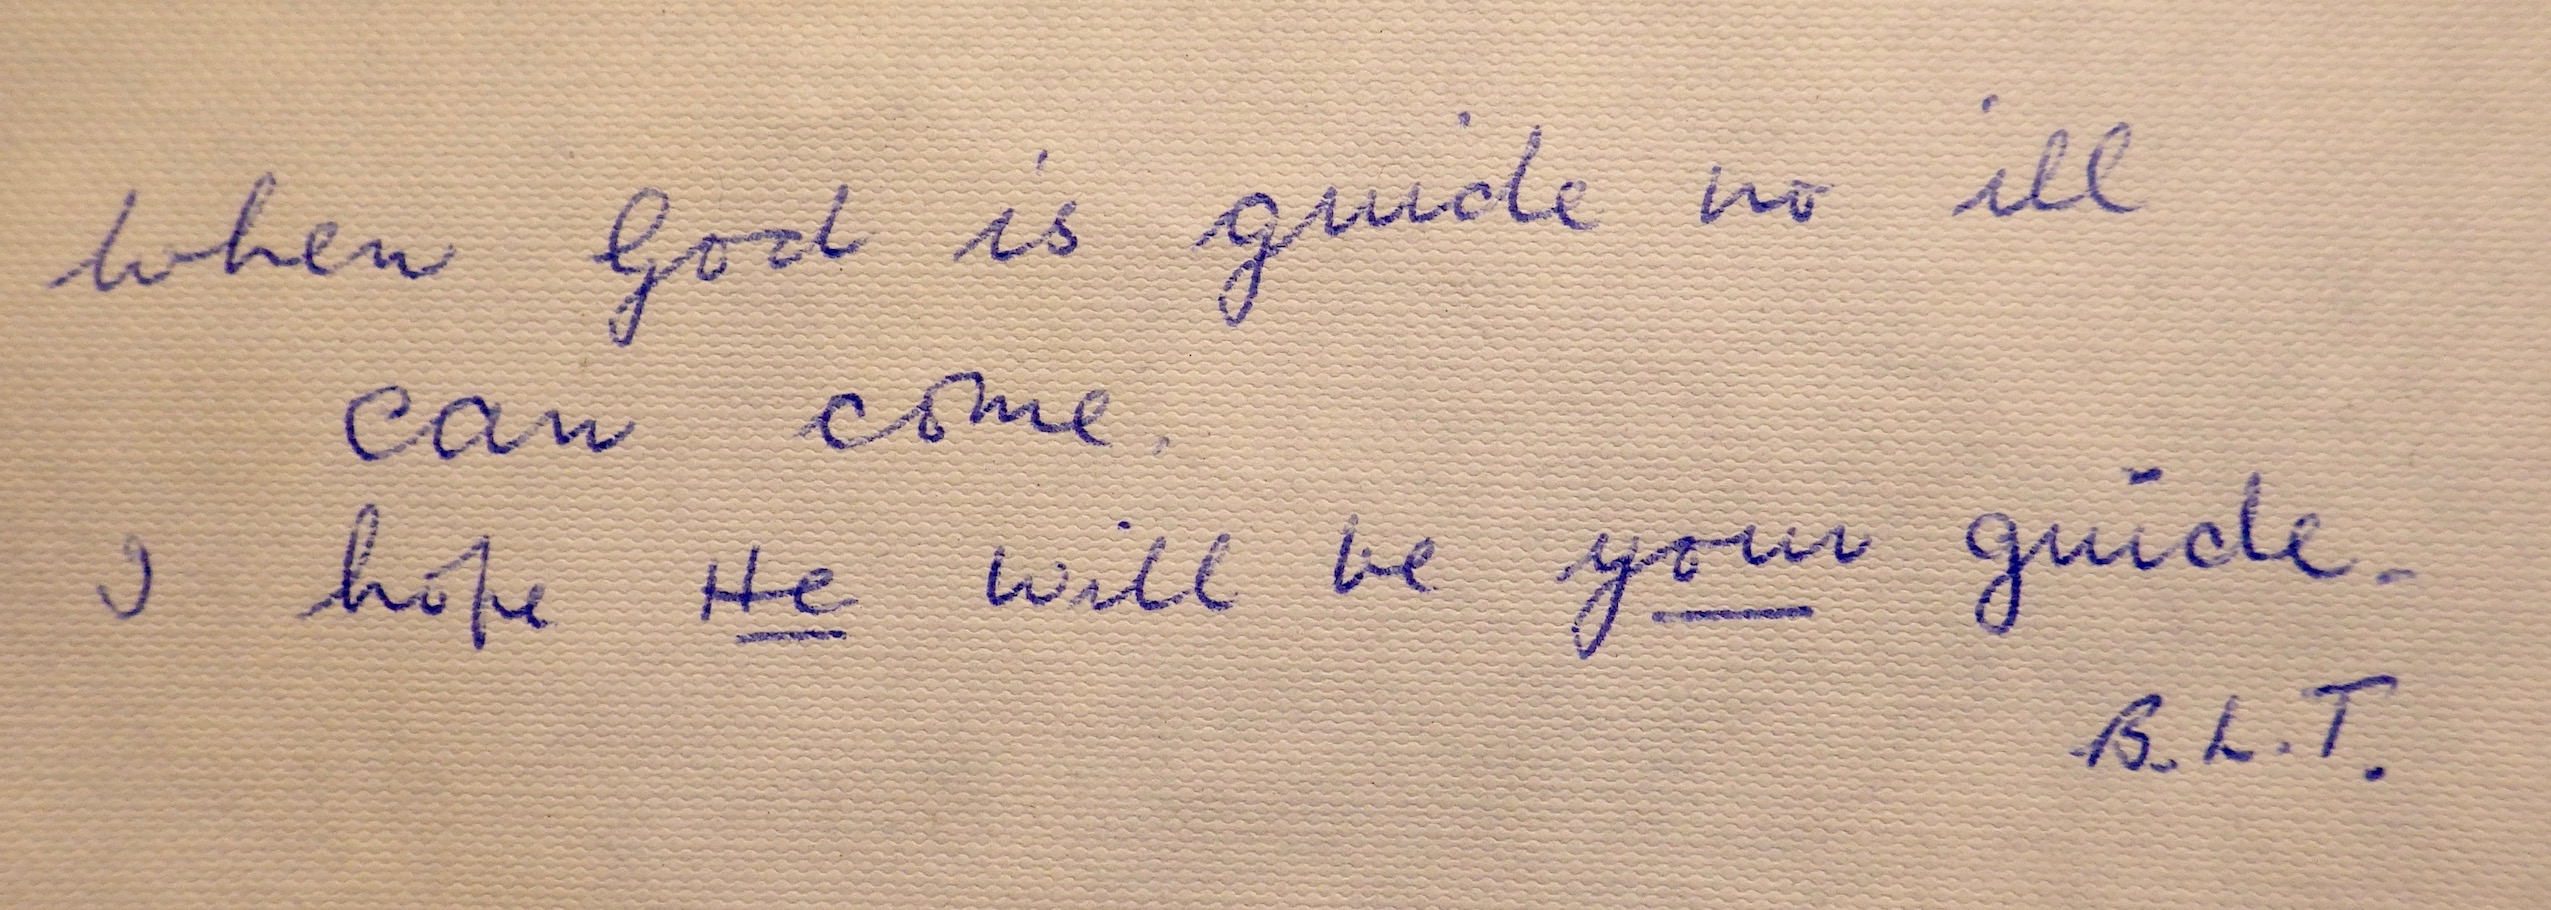 When God is guide no ill
can come.
I hope He will be your guide.
B.L.T.